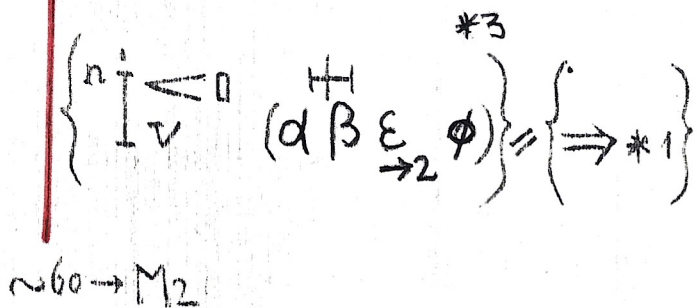 *3
{ n i < 0 v (α β ε →2 ϕ) } = { ⇒ *1 }
~60 → M2